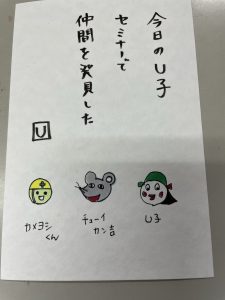 今日のU子
セミナーで
仲間を発見した
U
カメヨシ
くん
チューイ
カン吉
U子